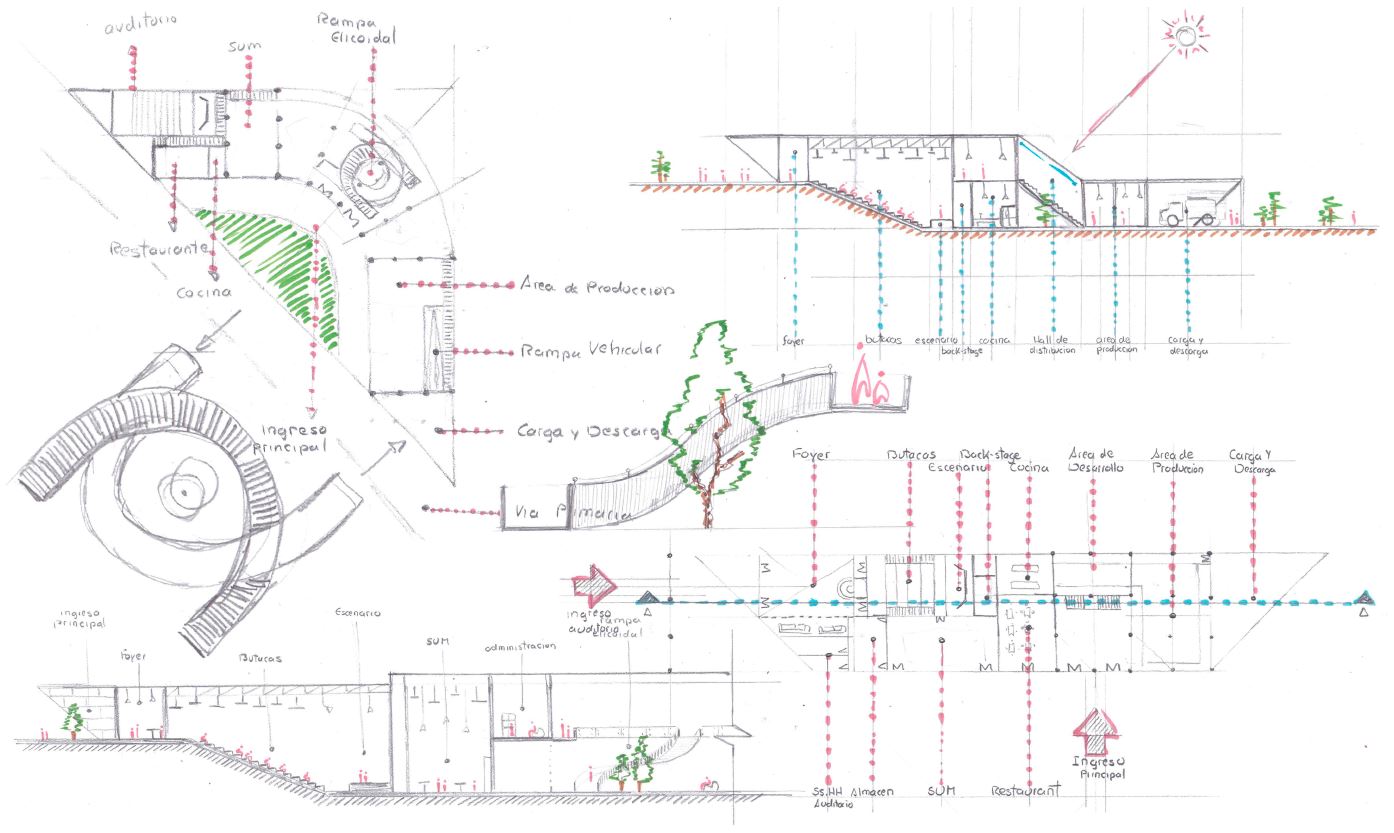 auditorio
sum
Rampa
Elicoidal
Restaurante
Cocina
Area de Produccion
Rampa Vehicular
Ingreso
principal
Carga y Descarga
Via Primaria
foyer
butacas
escenario
back-stage
cocina
Hall de
distribucion
area de
produccion
carga y
descarga
Foyer
Butacos
Escenario
Back-stage
Cocina
Area de
Desarrollo
Area de
Produccion
Carga Y
Descarga
ingreso
auditorio
rampa
elicoidal
SS.HH
Auditorio
Almacen
SUM
Restaurant
Ingreso
Principal
ingreso
principal
foyer
Butacas
Escenario
SUM
administracion